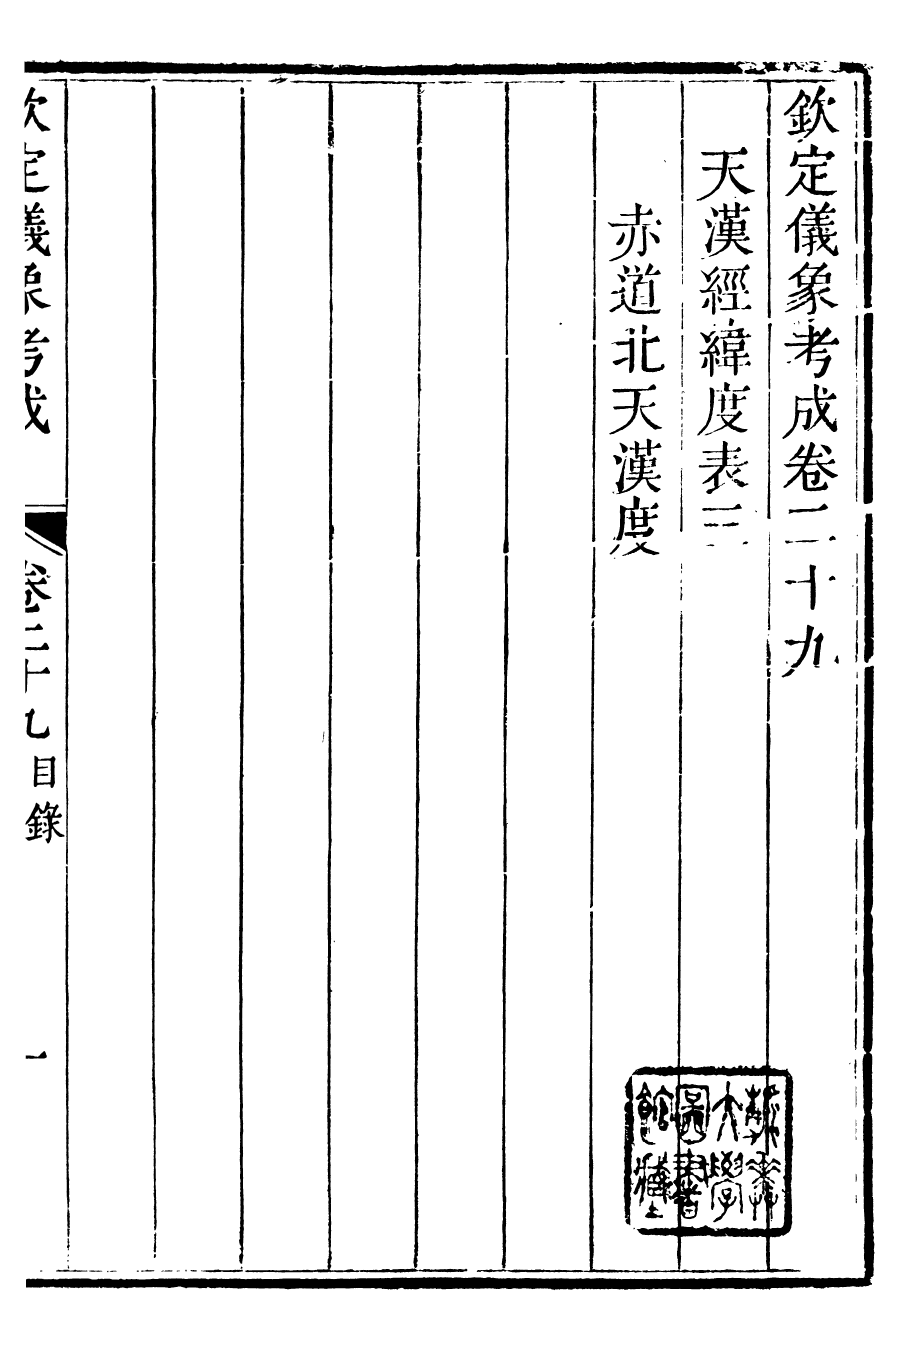 欽定儀象考成卷二十九
天漢經緯度表三
赤道北天漢度
欽定儀象考成 卷二十九目錄 一